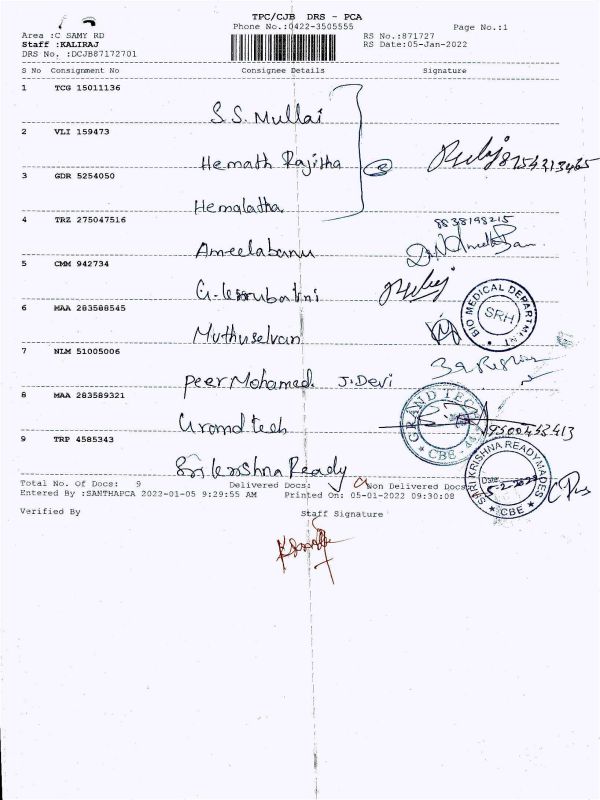 TPC/CJB DRS - PCA
Phone No.:0422-3505555
Page No.:1
Area :C SAMY RD
RS No.:871727
Staff :KALIRAJ
RS Date:05-Jan-2022
DRS No. :DCJB87172701
S No Consignment No Consignee Details Signature
1 TCG 15011136
S.S. Mullai
2 VLI 159473
Hemath Rajitha
8754213465
3 GDR 5254050
Hemalatha
4 TRZ 275047516
8838198215
Ameelabanu
5 CMM 942734
G.
6 MAA 283588545
BIO MEDICAL DEPARTMENT
SRH
Muthuselvan
7 NLM 51005006
Peer Mohamed. J. Devi
8 MAA 283589321
GRAND TECH
CBE
Grand tech
9500433413
9 TRP 4585343
SHRI KRISHNA READYMADES
Date:
CBE
Sri krishna Ready
Total No. Of Docs: 9 Delivered Docs: 9 Non Delivered Docs
Entered By :SANTHAPCA 2022-01-05 9:29:55 AM Printed On: 05-01-2022 09:30:08
Verified By Staff Signature